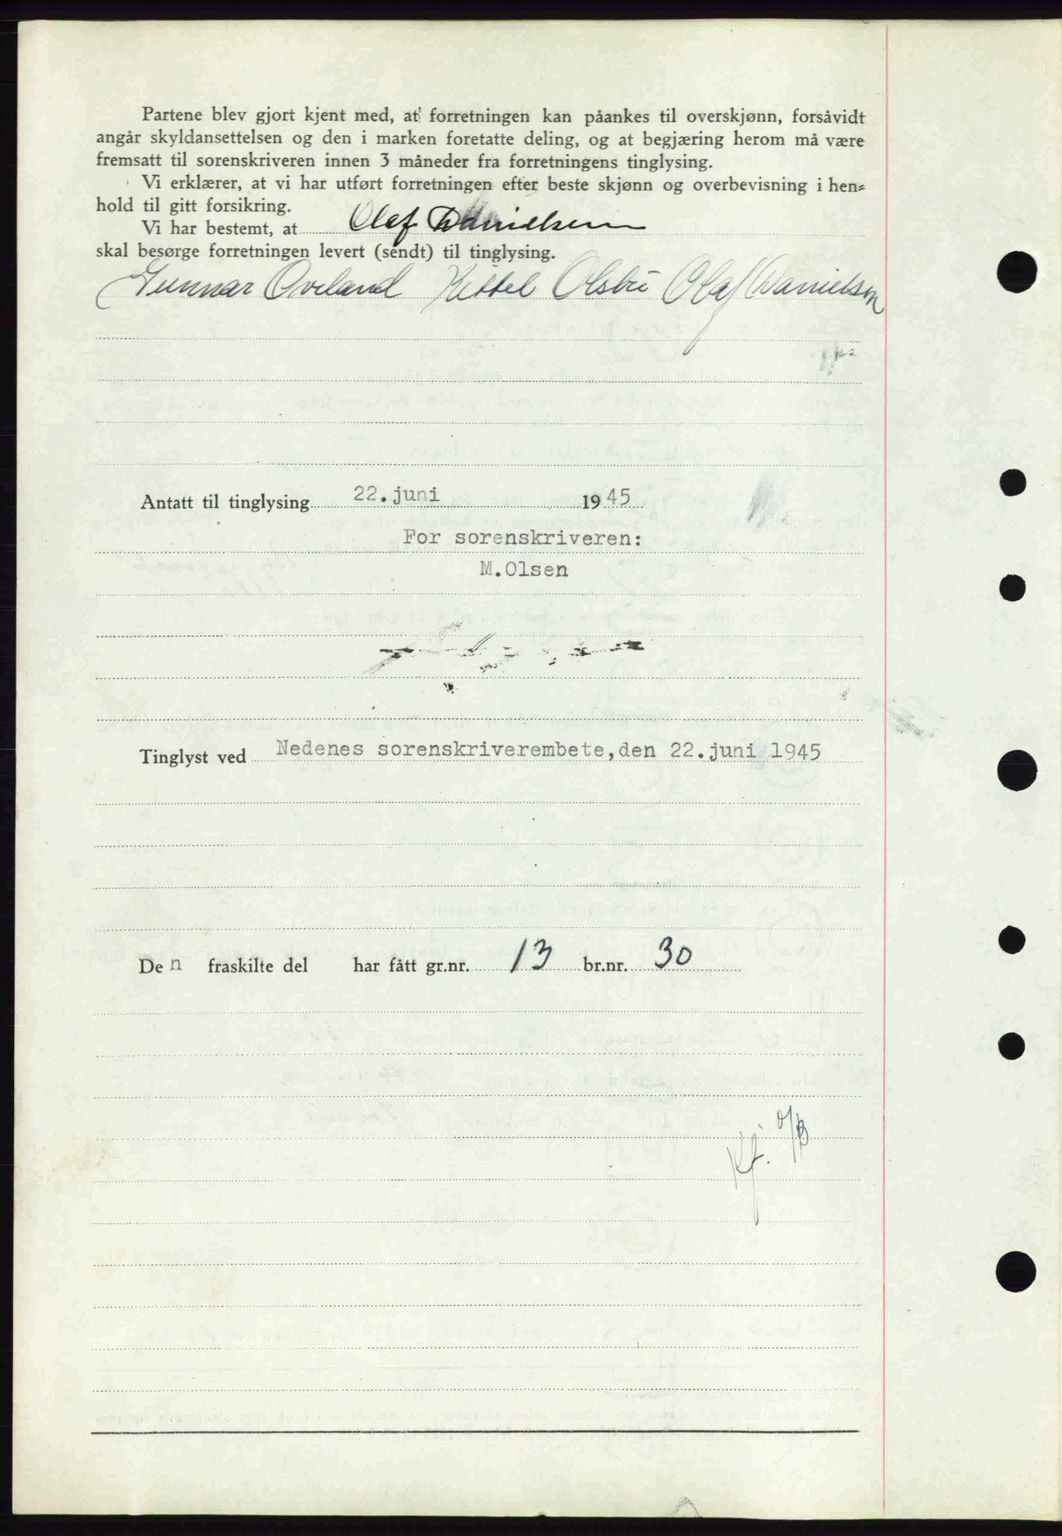 Partene blev gjort kjent med, at forretningen kan påankes til overskjønn, forsåvidt
angår skyldansettelsen og den i marken foretatte deling, og at begjæring herom må være
fremsatt til sorenskriveren innen 3 måneder fra forretningens tinglysing.
Vi erklærer, at vi har utført forretningen efter beste skjønn og overbevisning i hen-
hold til gitt forsikring.
Vi har bestemt, at Olaf Danielsen
skal besørge forretningen levert (sendt) til tinglysing.
Gunnar Oveland Kittel Olsbu Olaf Danielsen
Antatt til tinglysing 22.juni 1945
For sorenskriveren:
M.Olsen
Tinglyst ved Nedenes sorenskriverembete,den 22.juni 1945
Den fraskilte del har fått gr.nr. 13 br.nr. 30
Kf.